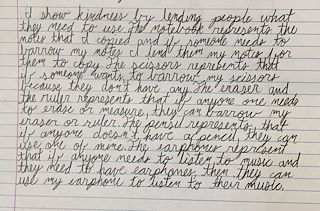 I show kindness by lending people what
they need to use. The notebook represents the
notes that I copied and if someone needs to
barrow my notes I lend them my notes for
them to copy. The scissors represents that
if someone wants to barrow my scissors
because they don't have any. The eraser and
the ruler represents that if anyone one needs
to erase or measure they can barrow my
eraser or ruler. The pensil represents that
if anyone doesn't have a pencil, they can
use one of mine. The earphones represent
that if anyone needs to listen to music and
they need to have earphones, then they can
use my earphone to listen to their music.